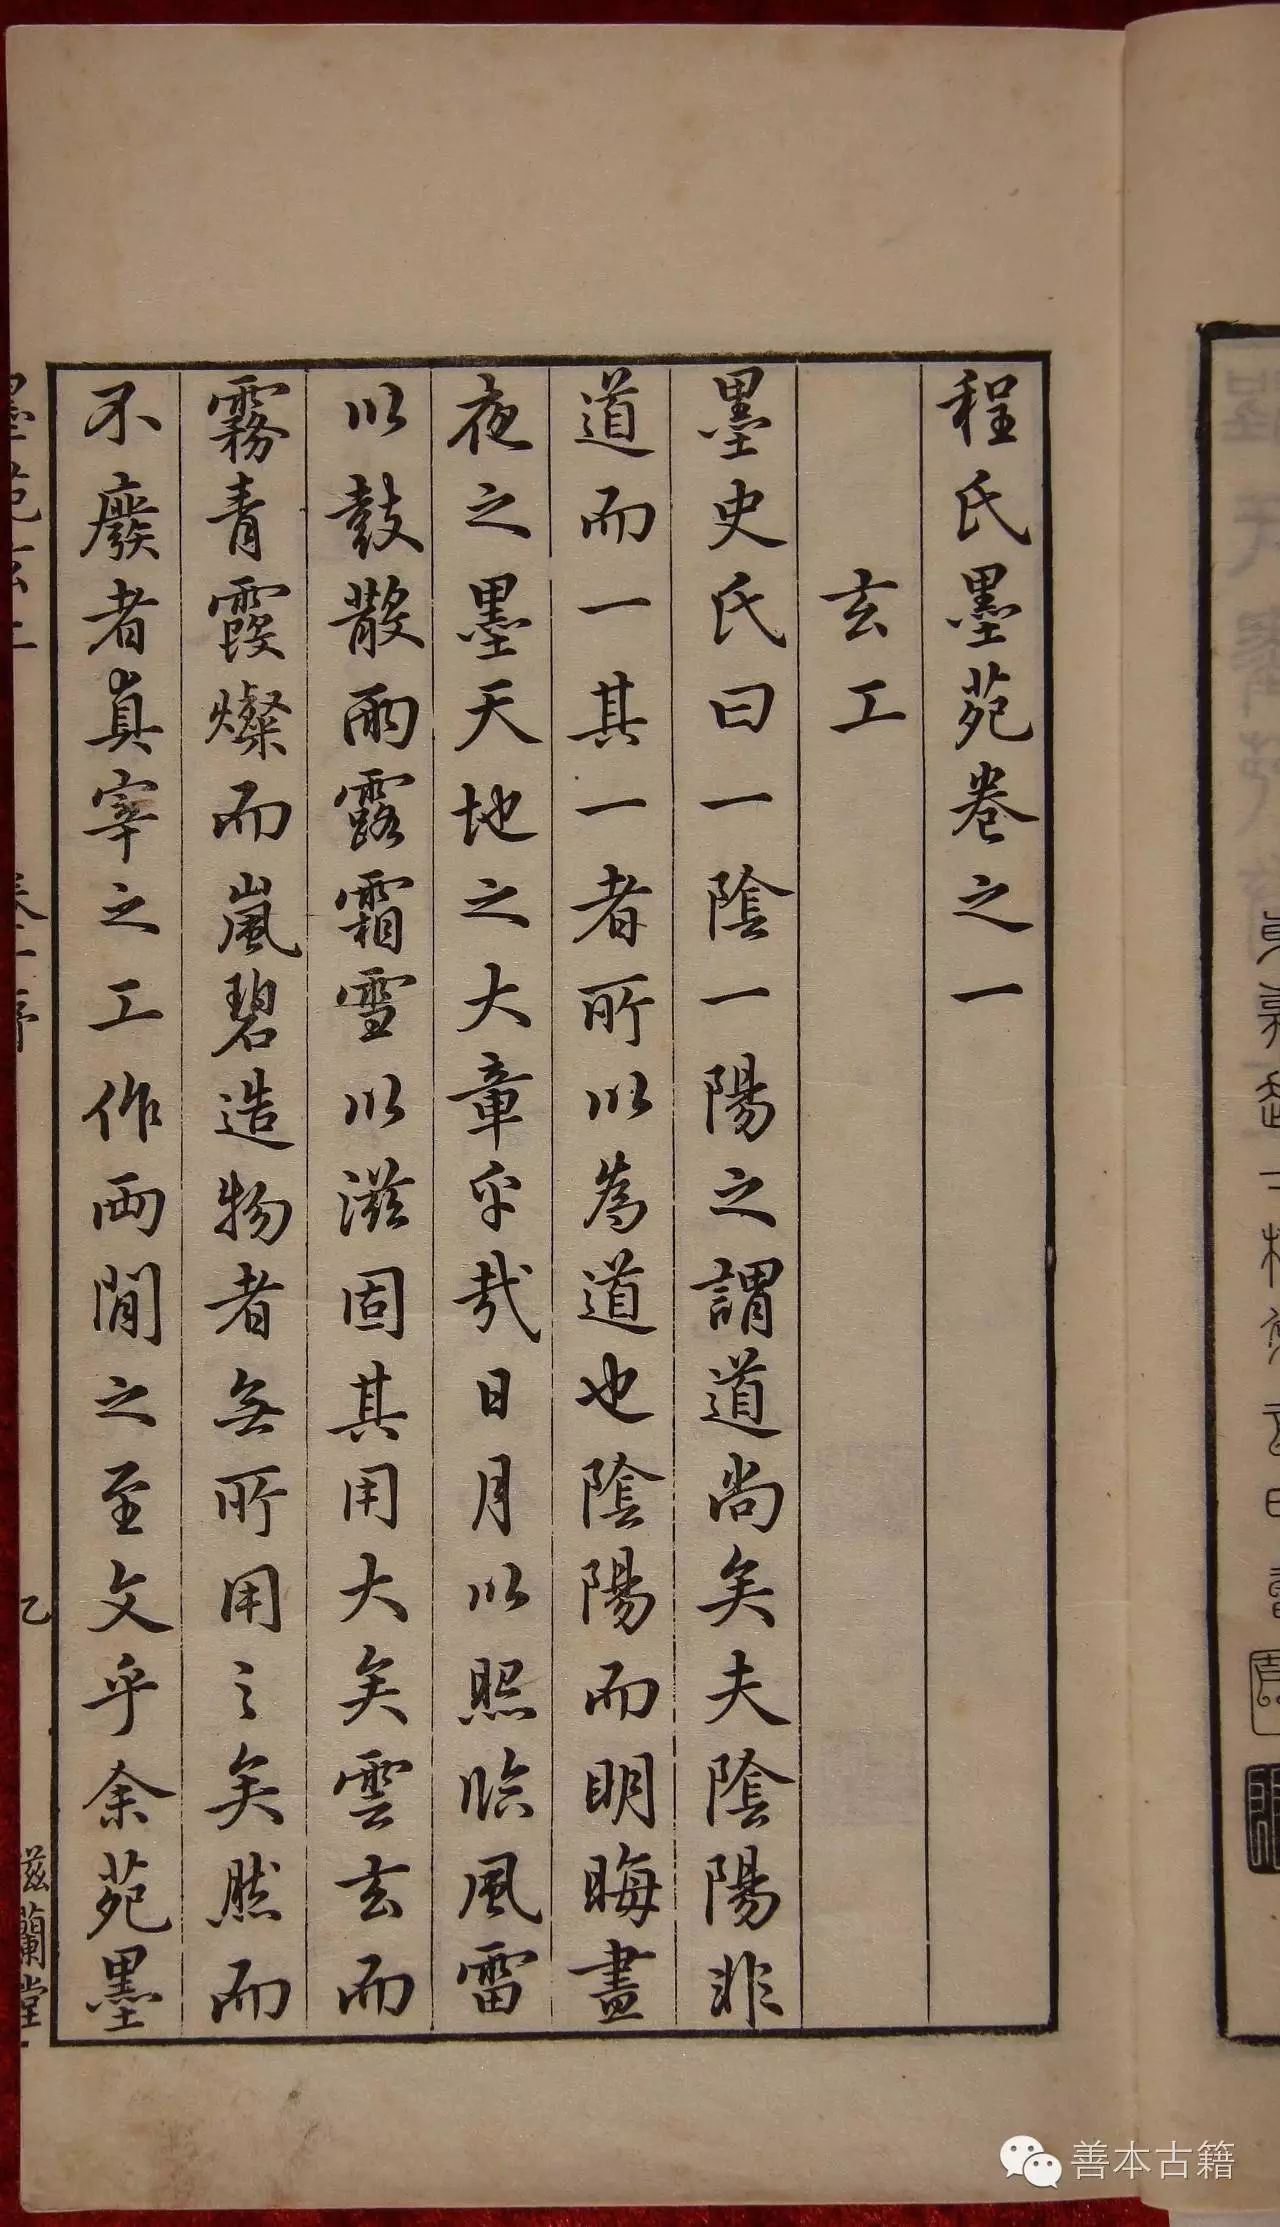 程氏墨苑卷之一
玄工
墨史氏曰一陰一陽之謂道尚矣夫陰陽非
道而一其一者所以為道也陰陽而明晦晝
夜之墨天地之大章乎哉日月以照臨風雷
以鼓散雨露霜雪以滋固其用大矣雲玄而
霧青霞燦而嵐碧造物者無所用之矣然而
不廢者真宰之工作兩間之至文乎余苑墨
墨苑玄工
卷一序
乙
滋蘭堂
善本古籍